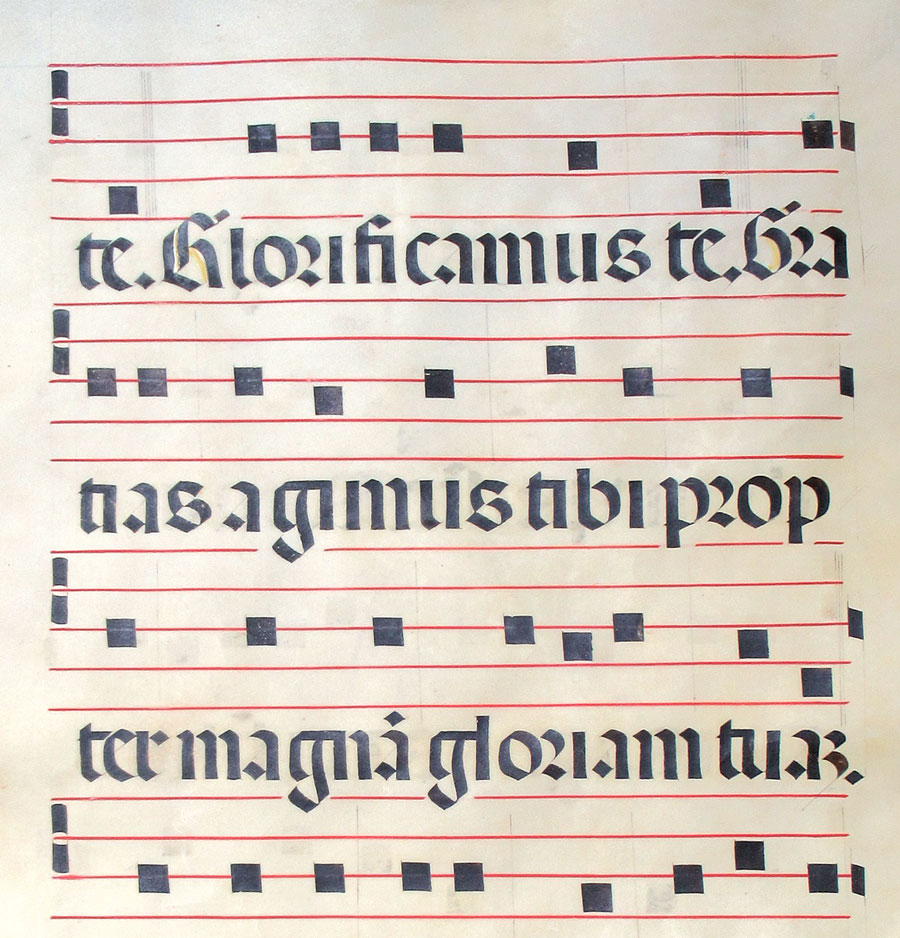 te. Glorificamus te, Gra
tias agimus tibi prop
ter magnā gloriam tuaꝫ.